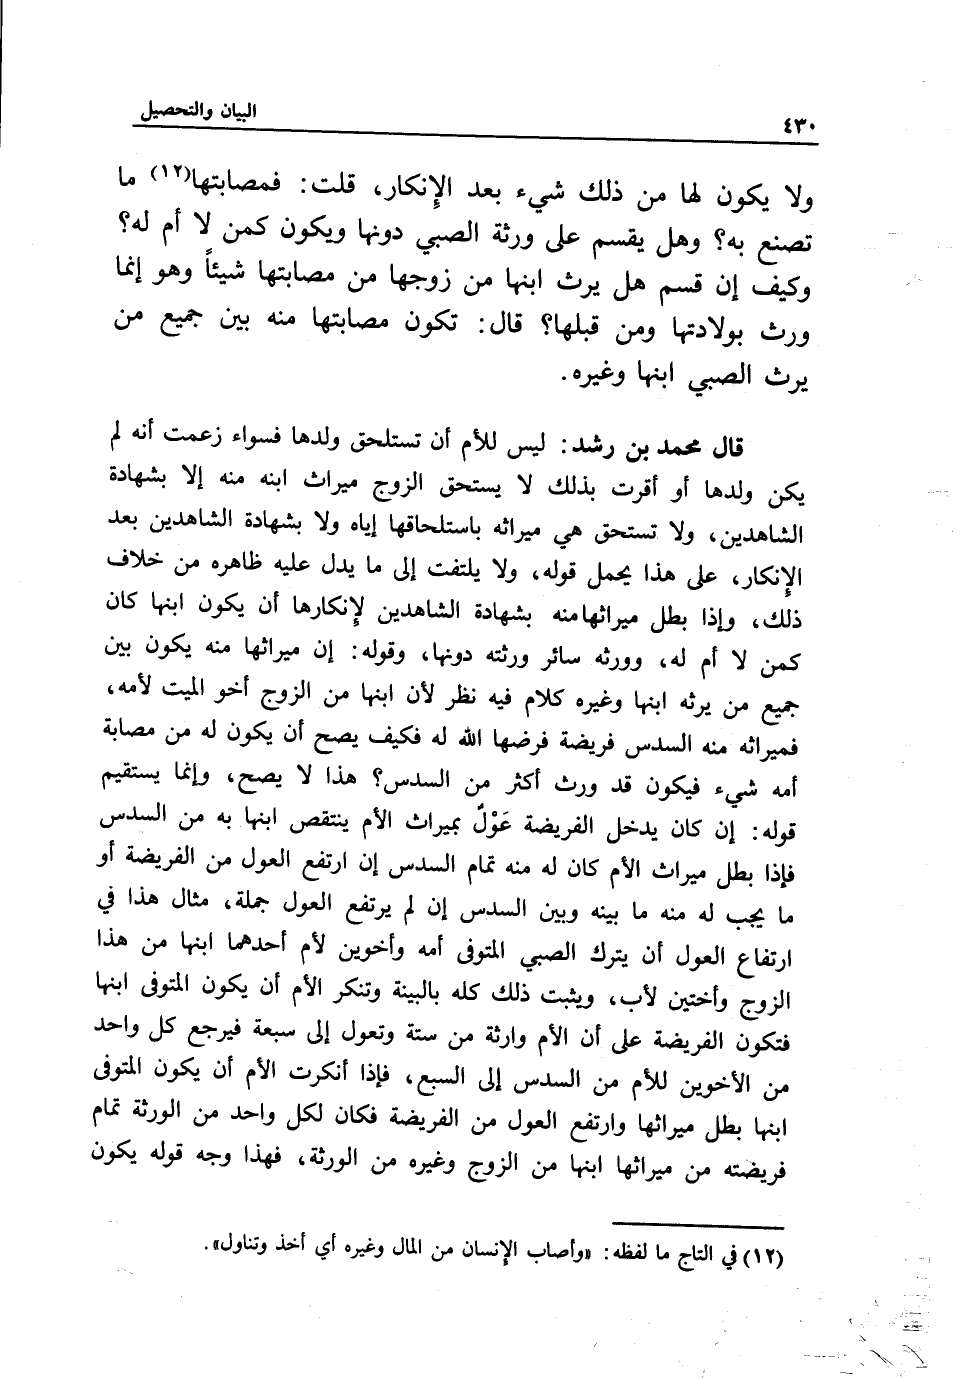 ٤٣٠ البيان والتحصيل
ولا يكون لها من ذلك شيء بعد الإنكار، قلت: فمصابتها(١٢) ما
تصنع به؟ وهل يقسم على ورثة الصبي دونها ويكون كمن لا أم له؟
وكيف إن قسم هل يرث ابنها من زوجها من مصابتها شيئاً وهو إنما
ورث بولادتها ومن قبلها؟ قال: تكون مصابتها منه بين جميع من
يرث الصبي ابنها وغيره.
قال محمد بن رشد: ليس للأم أن تستلحق ولدها فسواء زعمت أنه لم
يكن ولدها أو أقرت بذلك لا يستحق الزوج ميراث ابنه منه إلا بشهادة
الشاهدين، ولا تستحق هي ميراثه باستلحاقها إياه ولا بشهادة الشاهدين بعد
الإنكار، على هذا يحمل قوله، ولا يلتفت إلى ما يدل عليه ظاهره من خلاف
ذلك، وإذا بطل ميراثها منه بشهادة الشاهدين لإنكارها أن يكون ابنها كان
كمن لا أم له، وورثه سائر ورثته دونها، وقوله: إن ميراثها منه يكون بين
جميع من يرثه ابنها وغيره كلام فيه نظر لأن ابنها من الزوج أخو الميت لأمه،
فميراثه منه السدس فريضة فرضها الله له فكيف يصح أن يكون له من مصابة
أمه شيء فيكون قد ورث أكثر من السدس؟ هذا لا يصح، وإنما يستقيم
قوله: إن كان يدخل الفريضة عَوْلٌ بميراث الأم ينتقص ابنها به من السدس
فإذا بطل ميراث الأم كان له منه تمام السدس إن ارتفع العول من الفريضة أو
ما يجب له منه ما بينه وبين السدس إن لم يرتفع العول جملة، مثال هذا في
ارتفاع العول أن يترك الصبي المتوفى أمه وأخوين لأم أحدهما ابنها من هذا
الزوج وأختين لأب، ويثبت ذلك كله بالبينة وتنكر الأم أن يكون المتوفى ابنها
فتكون الفريضة على أن الأم وارثة من ستة وتعول إلى سبعة فيرجع كل واحد
من الأخوين للأم من السدس إلى السبع، فإذا أنكرت الأم أن يكون المتوفى
ابنها بطل ميراثها وارتفع العول من الفريضة فكان لكل واحد من الورثة تمام
فريضته من ميراثها ابنها من الزوج وغيره من الورثة، فهذا وجه قوله يكون
(١٢) في التاج ما لفظه: «وأصاب الإنسان من المال وغيره أي أخذ وتناول».